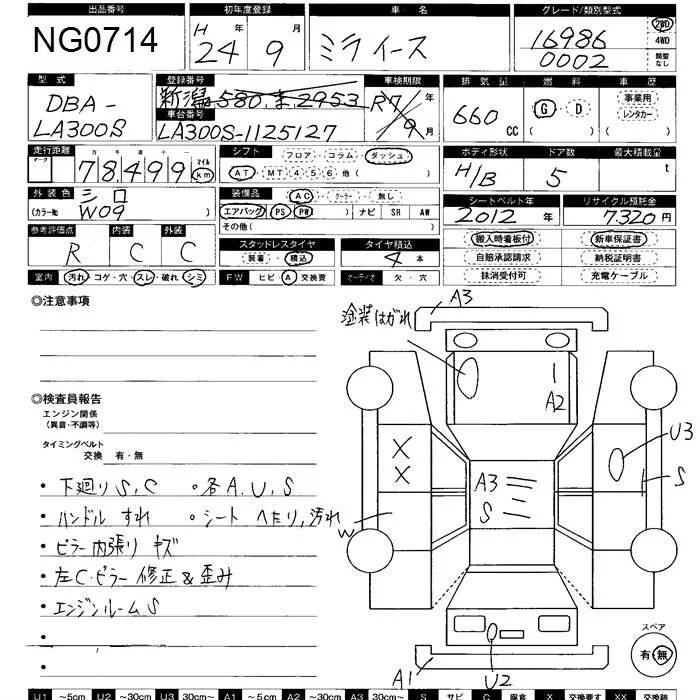 出品番号 初年度登録 車名 グレード/類別型式
NG0714 H 24年 9月 ミライース 16986 0002 2WD 4WD 類型なし
型式 登録番号 車検期限 排気量 燃料 車歴
DBA-LA300S 新潟 580 ま 2953 R7年 9月 660 CC G D 事業用 レンタカー
車台番号
LA300S-1125127
走行距離 シフト フロア・コラム・ダッシュ ボディ形状 ドア数 最大積載量
マーク 十万 万 千 百 十 一 78499 マイル km AT・MT 4 5 6 他( ) H/B 5 t
外装色 三口 装備品 AC・クーラー・無し シートベルト年 リサイクル預託金
(カラーNo W09 ) エアバッグ PS PW ナビ SR AW 2012年 7,320円
その他( )
参考評価点 内装 外装 スタッドレスタイヤ タイヤ積込 搬入時看板付 新車保証書
R C C 装着・積込 4本 自賠承認請求 納税証明書
室内 汚れ・コゲ・穴・スレ・破れ・シミ FW ヒビ・A・交換要 オーディオ 欠・穴 抹消受付可 充電ケーブル
◎注意事項
塗装はがれ
A3
A2
◎検査員報告
エンジン関係
(異音・不調等)
タイミングベルト
交換 有・無
X
X
U3
S
A3
S
W
・下廻りS,C ・各A,U,S
・ハンドル すれ ・シート へたり,汚れ
・ピラー内張り キズ
・左C・ピラー 修正&歪み
・エンジンルームS
A1
U2
スペア
有・無
U1 ~5cm U2 ~30cm U3 30cm~ A1 ~5cm A2 ~30cm A3 30cm~ S サビ C 腐食 X 交換要す XX 交換跡